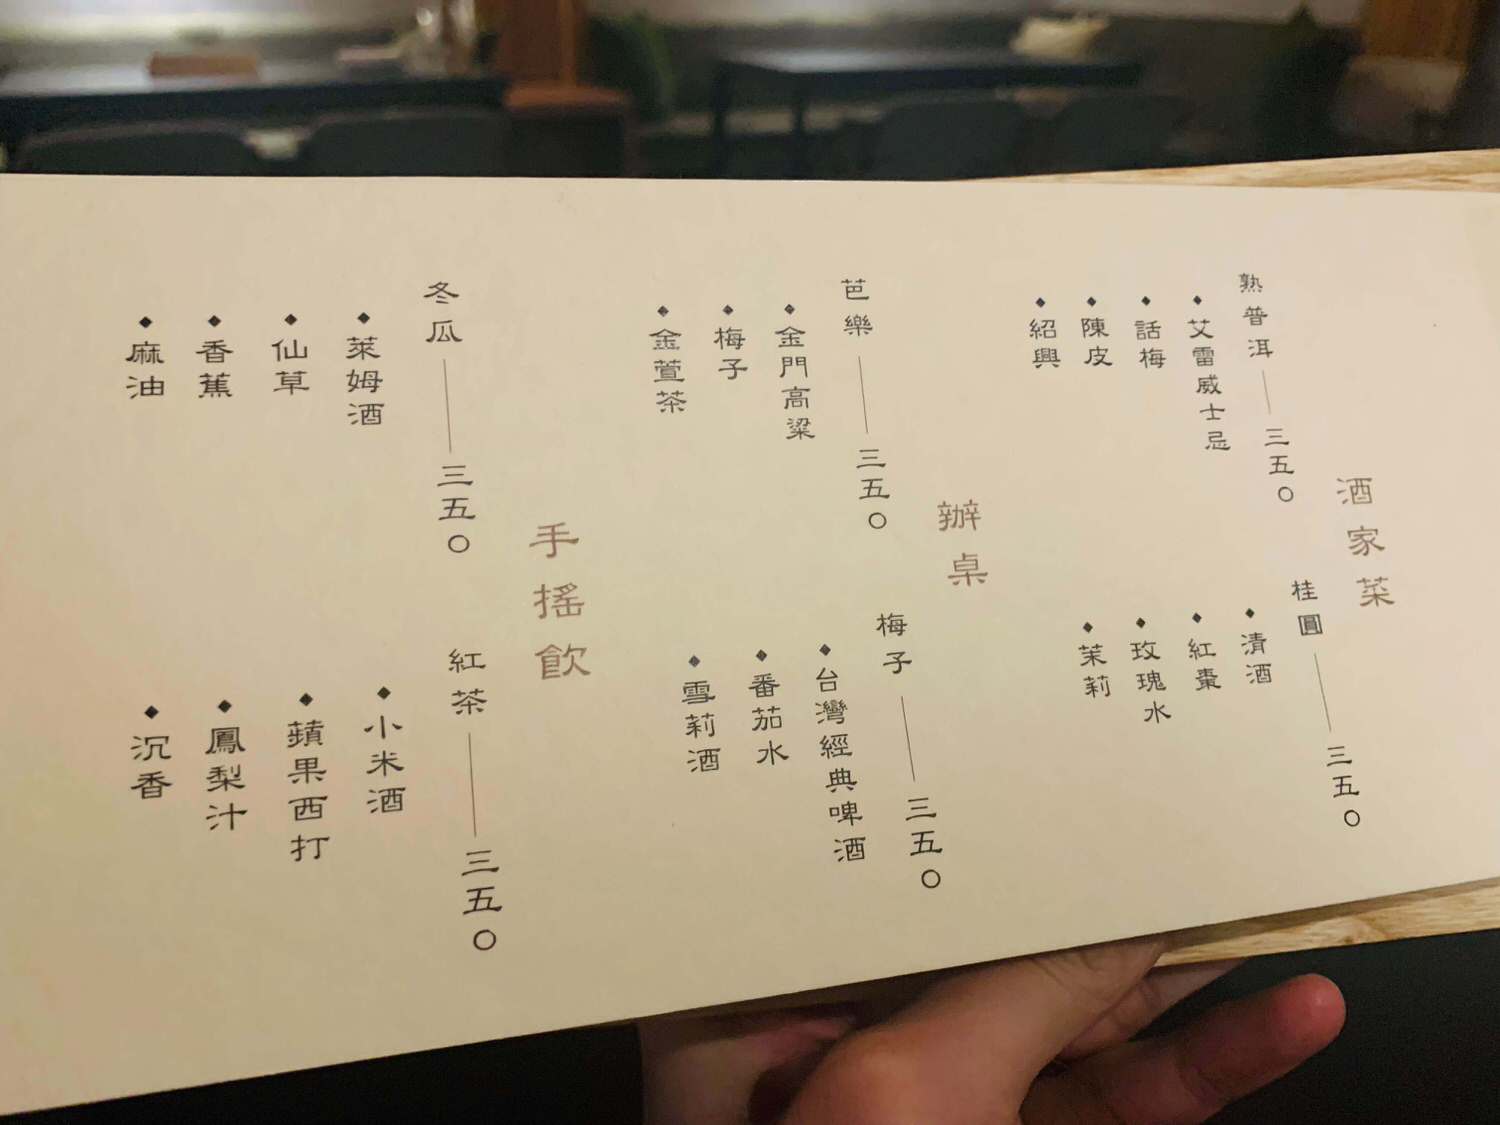 酒家菜
熟普洱 三五〇
◆艾雷威士忌
◆話梅
◆陳皮
◆紹興
桂圓 三五〇
◆清酒
◆紅棗
◆玫瑰水
◆茉莉
辦桌
芭樂 三五〇
◆金門高粱
◆梅子
◆金萱茶
梅子 三五〇
◆台灣經典啤酒
◆番茄水
◆雪莉酒
手搖飲
冬瓜 三五〇
◆萊姆酒
◆仙草
◆香蕉
◆麻油
紅茶 三五〇
◆小米酒
◆蘋果西打
◆鳳梨汁
◆沉香